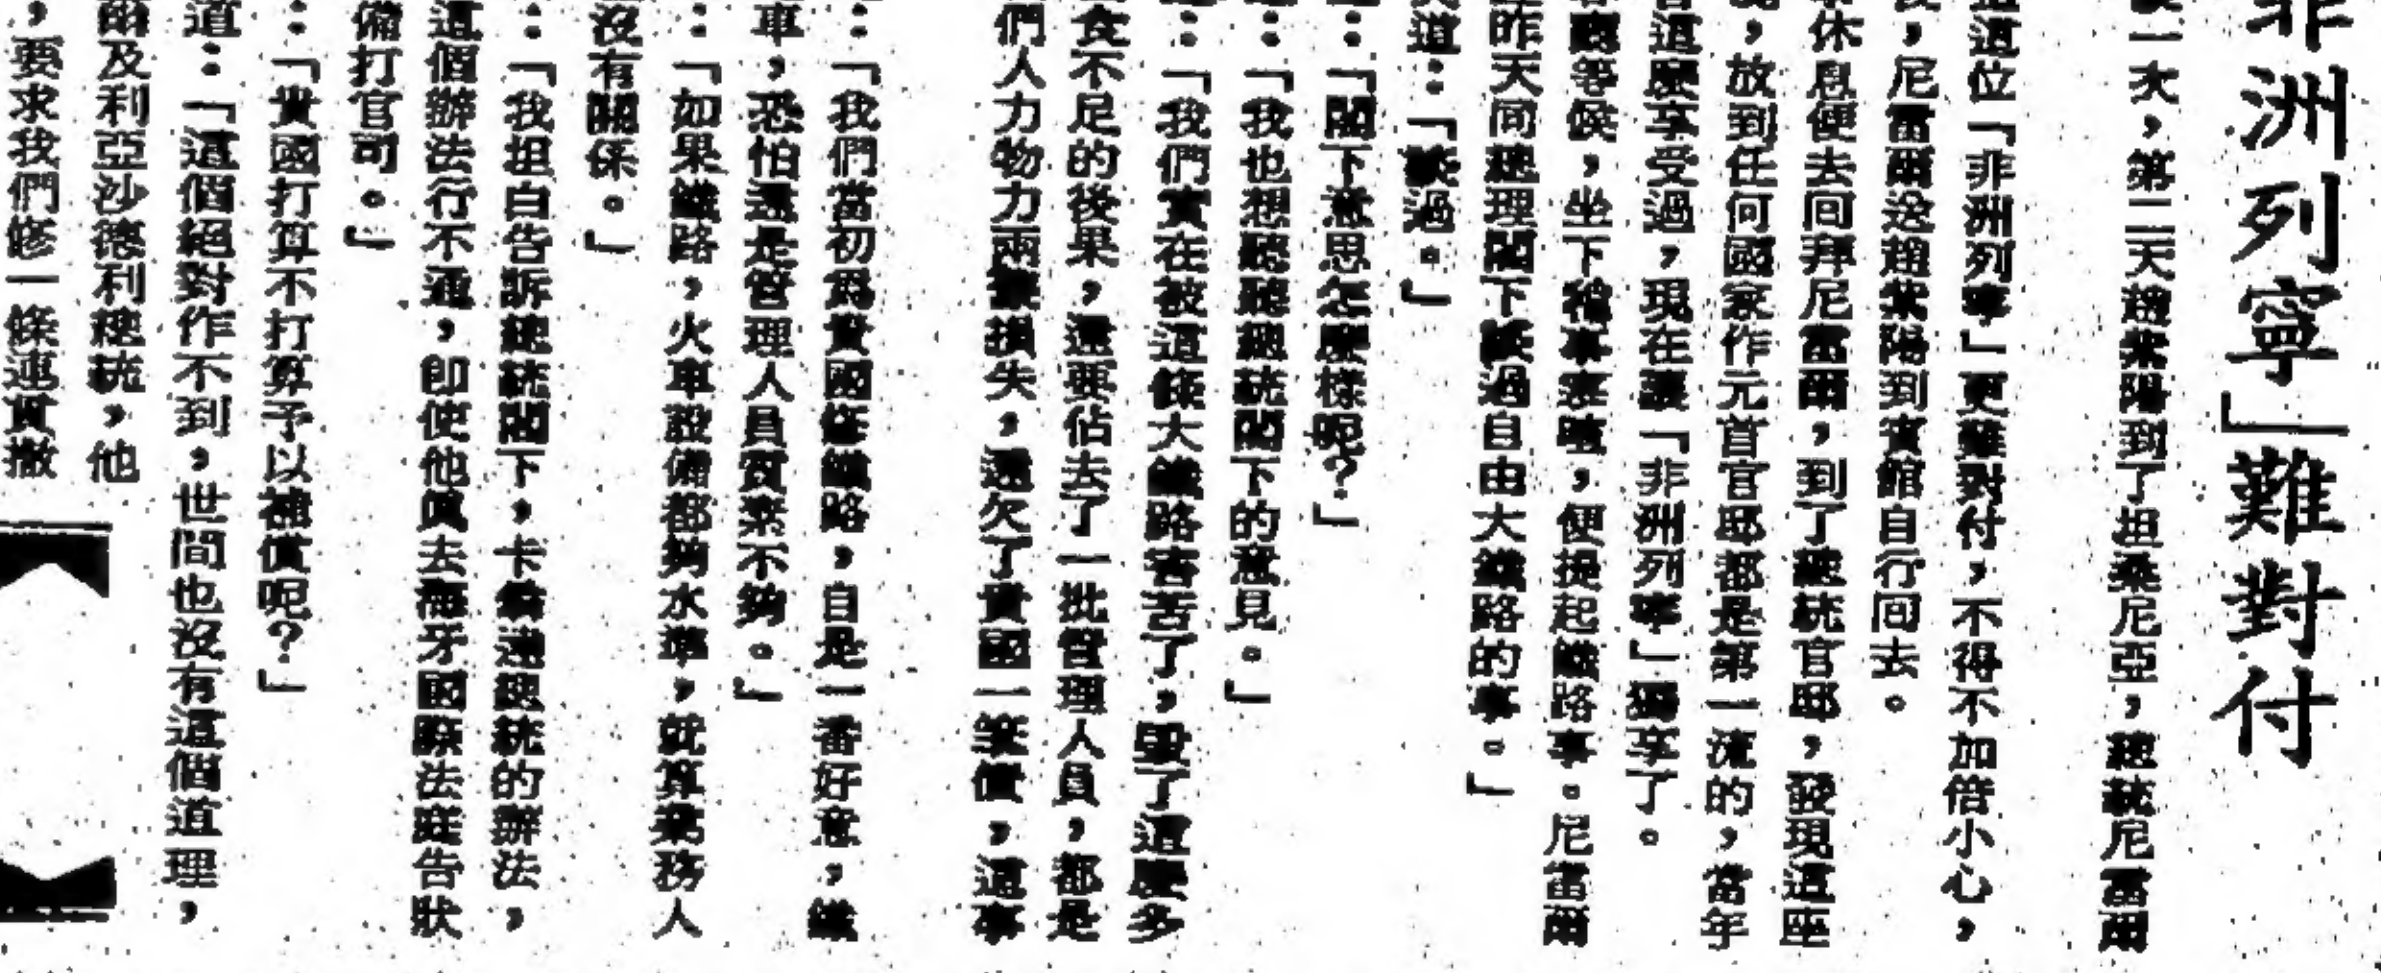 非洲列寧」難對付
一次，第二天趙紫陽到了坦桑尼亞，總統尼雷爾
這位「非洲列寧」更難對付，不得不加倍小心，
，尼雷爾送趙紫陽到賓館自行回去。
休息便去回拜尼雷爾，到了總統官邸，發現這座
，放到任何國家作元首官邸都是第一流的，當年
這麼享受過，現在讓「非洲列寧」獨享了。
廳等候，坐下稍事寒暄，便提起鐵路事。尼雷爾
昨天同總理閣下談過自由大鐵路的事。」
道：「談過。」
：「閣下意思怎麼樣呢？」
：「我也想聽聽總統閣下的意見。」
：「我們實在被這條大鐵路害苦了，毀了這麼多
食不足的後果，還要佔去了一批管理人員，都是
們人力物力兩樣損失，還欠了貴國一筆債，這事
：「我們當初為貴國修鐵路，自是一番好意，鐵
車，恐怕還是管理人員質素不夠。」
：「如果鐵路，火車設備都夠水準，就算業務人
沒有關係。」
：「我坦白告訴總統閣下，卡翁達總統的辦法，
這個辦法行不通，即使他真去海牙國際法庭告狀
備打官司。」
：「貴國打算不打算予以補償呢？」
道：「這個絕對作不到，世間也沒有這個道理，
爾及利亞沙德利總統，他
，要求我們修一條連貫撒